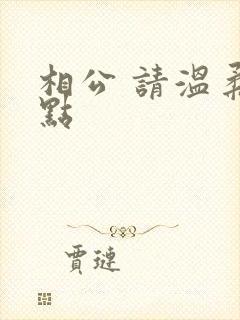 相公 請溫柔
點
賈璉